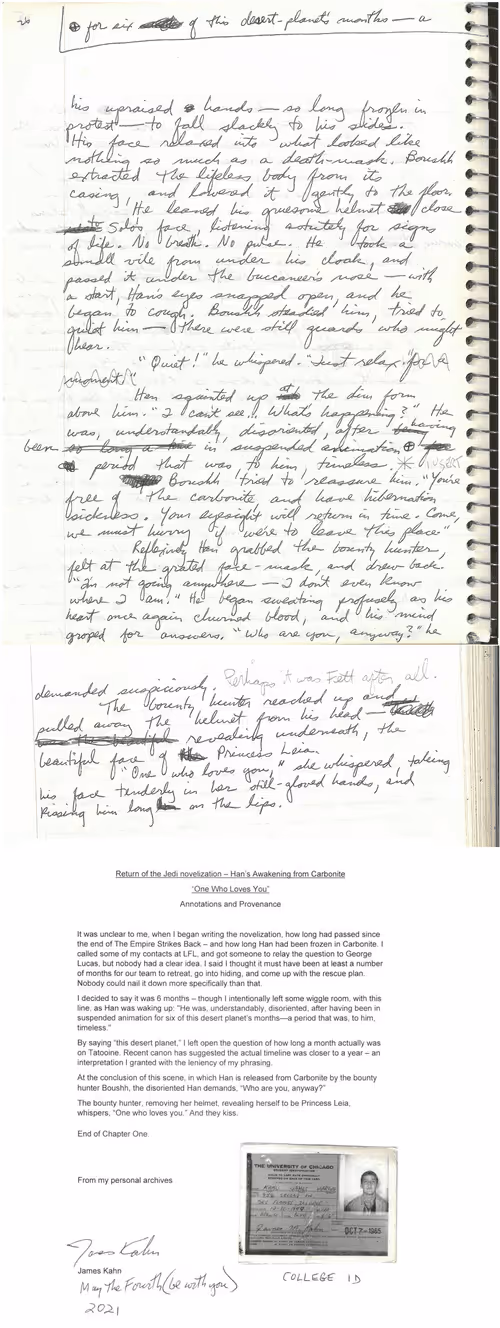 ⊕ for six of this desert-planets months — a
his upraised hands — so long frozen in
protest — to fall slackly to his sides.
His face relaxed into what looked like
nothing so much as a death-mask. Boushh
extracted the lifeless body from its
casing, and lowered it gently to the floor.
He leaned his gruesome helmet close
Solo's face, listening astutely for signs
of life. No breath. No pulse. He took a
small vile from under his cloak, and
passed it under the buccaneer's nose — with
a start, Han's eyes snapped open, and he
began to cough. Boushh steadied him, tried to
quiet him — there were still guards who might
hear.
"Quiet!" he whispered. "Just relax for a
moment."
Han squinted up at the dim form
above him. "I can't see!! What's happening?" He
was, understandably, disoriented, after having
been so long a time in suspended animation ⊕ for
period that was, to him, timeless. * INSERT
Boushh tried to reassure him. "You're
free of the carbonite and have hibernation
sickness. Your eyesight will return in time. Come,
we must hurry if we're to leave this place."
Reflexively Han grabbed the bounty hunter,
felt at the grated face-mask, and drew back.
"I'm not going anywhere — I don't even know
where I am." He began sweating profusely as his
heart once again churned blood, and his mind
groped for answers. "Who are you, anyway?" he
demanded suspiciously. Perhaps it was Fett after all.
The bounty hunter reached up and
pulled away the helmet from his head —
was the beautiful revealing underneath, the
beautiful face of Princess Leia.
"One who loves you," she whispered, taking
his face tenderly in her still-gloved hands, and
kissing him long on the lips.
Return of the Jedi novelization – Han's Awakening from Carbonite
"One Who Loves You"
Annotations and Provenance
It was unclear to me, when I began writing the novelization, how long had passed since
the end of The Empire Strikes Back – and how long Han had been frozen in Carbonite. I
called some of my contacts at LFL, and got someone to relay the question to George
Lucas, but nobody had a clear idea. I said I thought it must have been at least a number
of months for our team to retreat, go into hiding, and come up with the rescue plan.
Nobody could nail it down more specifically than that.
I decided to say it was 6 months – though I intentionally left some wiggle room, with this
line, as Han was waking up: "He was, understandably, disoriented, after having been in
suspended animation for six of this desert planet's months—a period that was, to him,
timeless."
By saying "this desert planet," I left open the question of how long a month actually was
on Tatooine. Recent canon has suggested the actual timeline was closer to a year – an
interpretation I granted with the leniency of my phrasing.
At the conclusion of this scene, in which Han is released from Carbonite by the bounty
hunter Boushh, the disoriented Han demands, "Who are you, anyway?"
The bounty hunter, removing her helmet, revealing herself to be Princess Leia,
whispers, "One who loves you." And they kiss.
End of Chapter One.
From my personal archives
THE UNIVERSITY OF CHICAGO
OCT 7 - 1965
James Kahn
James Kahn
May The Fourth (be with you)
2021
COLLEGE ID